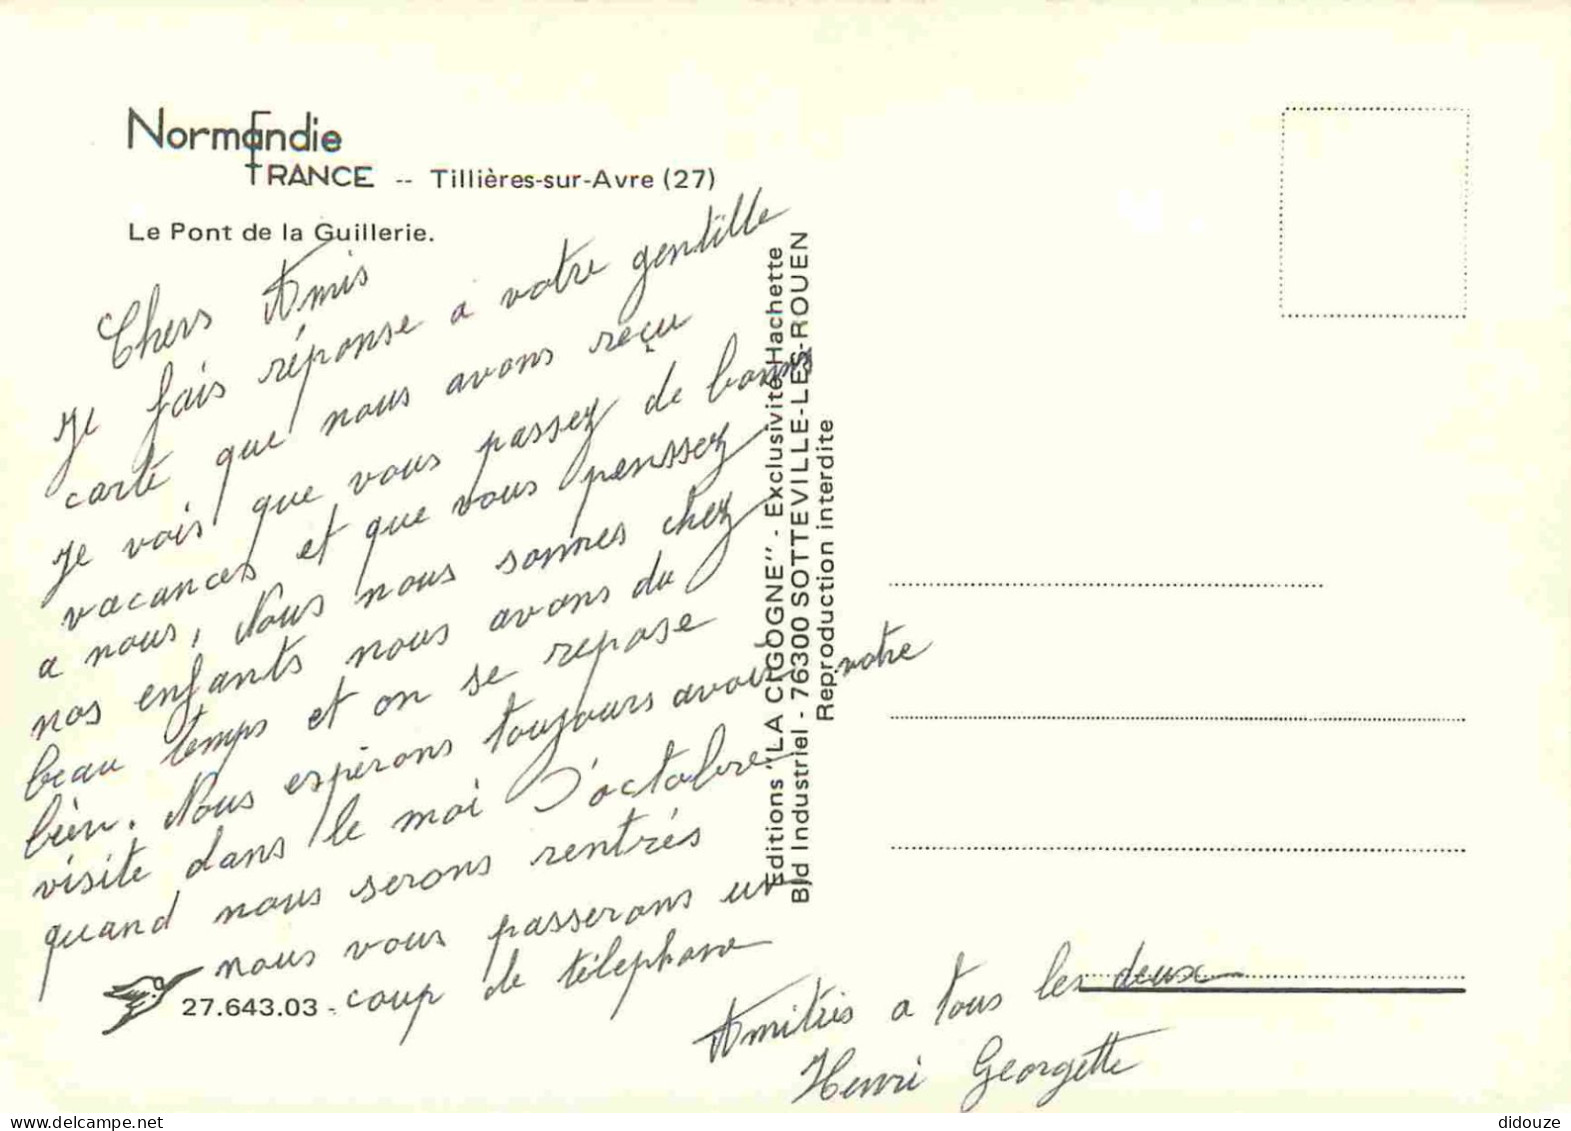 Normandie
FRANCE -- Tillières-sur-Avre (27)
Le Pont de la Guillerie.
Chers Amis
Je fais réponse a votre gentille
carte que nous avons reçu
Je vois que vous passez de bonnes
vacances et que vous penssez
a nous, Nous nous sommes chez
nos enfants nous avons du
beau temps et on se repose
bien. Nous espérons toujours avoir votre
visite dans le moi d'octobre
quand nous serons rentrés
nous vous passerons un
coup de téléphone
27.643.03 -
Amitiés a tous les deux
Henri Georgette
Editions "LA CIGOGNE" - Exclusivité Hachette
Bld Industriel - 76300 SOTTEVILLE-LES-ROUEN
Reproduction interdite
didouze